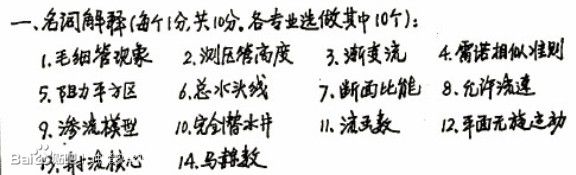 一、名词解释(每个1分,共10分。各专业选做其中10个):
1.毛细管现象 2.测压管高度 3.渐变流 4.雷诺相似准则
5.阻力平方区 6.总水头线 7.断面比能 8.允许流速
9.渗流模型 10.完全潜水井 11.流函数 12.平面无旋运动
13.射流核心 14.马赫数